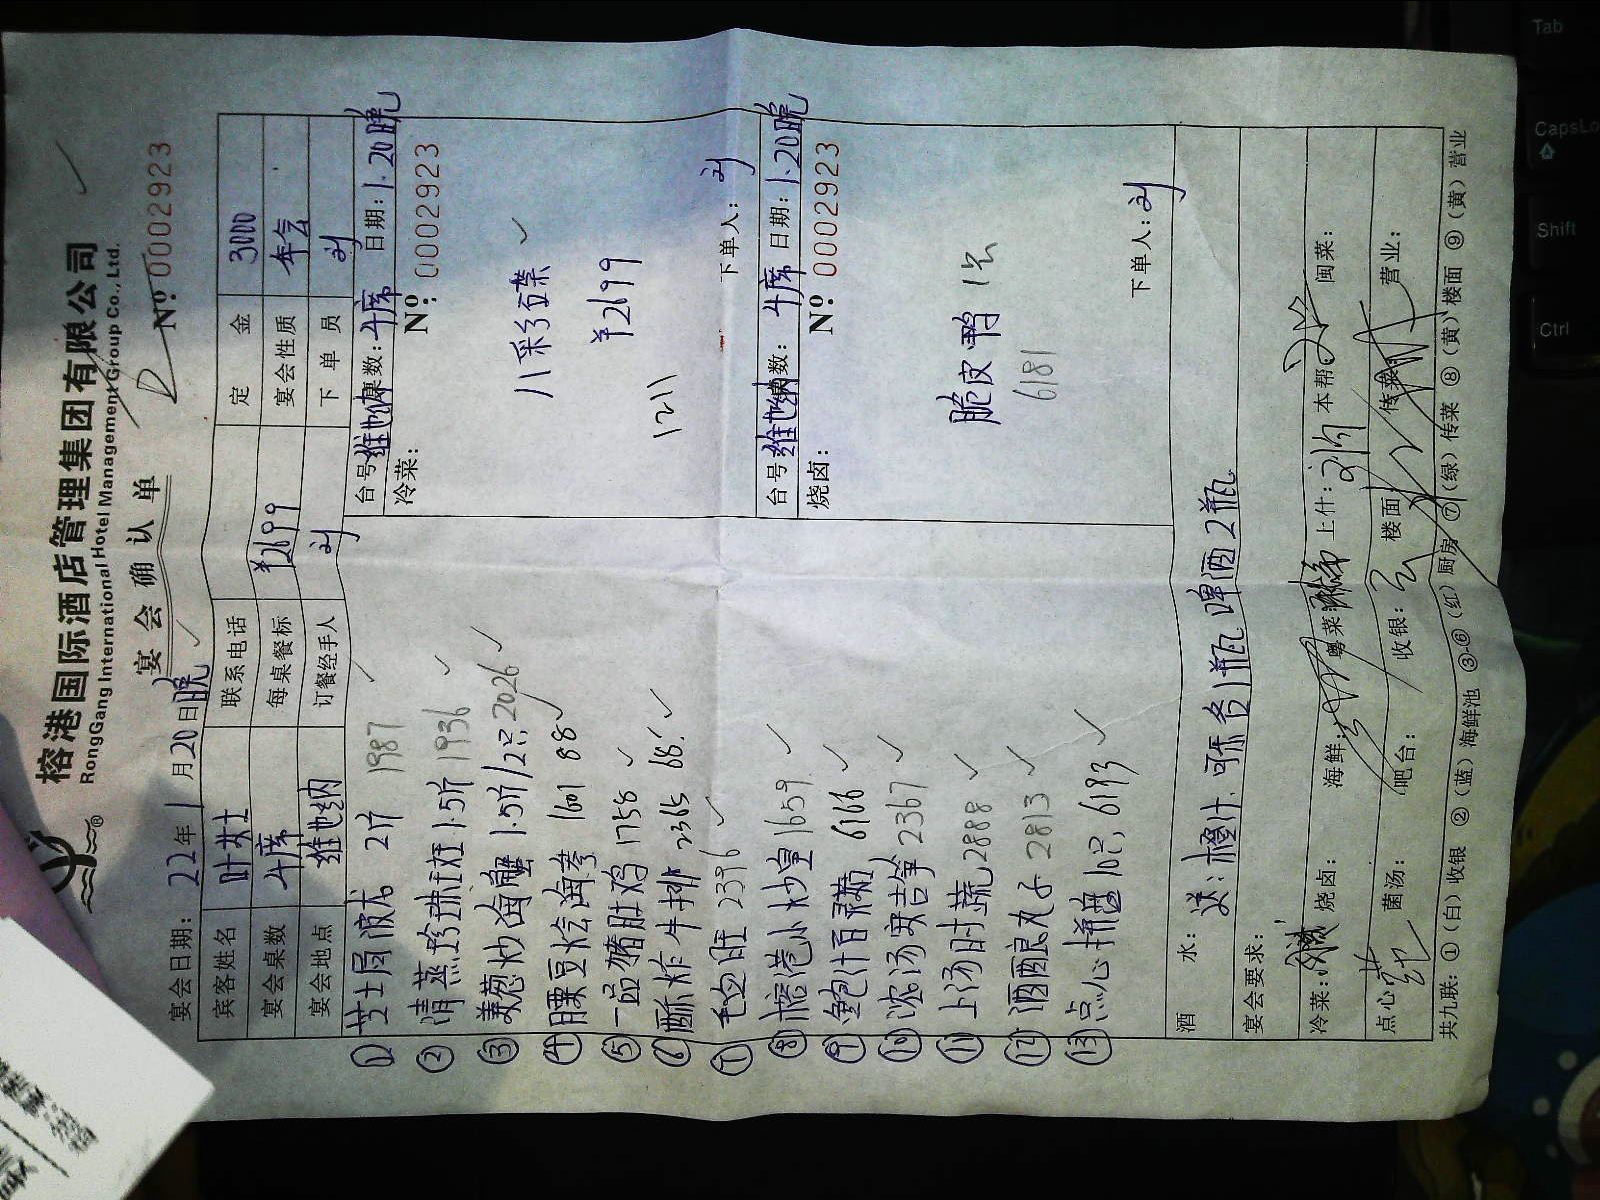 榕港国际酒店管理集团有限公司
RongGang International Hotel Management Group Co., Ltd.
宴会确认单
宴会日期：22年1月20日晚
Nº 00002923
宾客姓名 联系电话 定金 3000
宴会桌数 4席 每桌餐标 ¥2699 宴会性质 年会
宴会地点 维也纳 订餐经手人 刘 下单员 刘
① 芝士焗波龙 2斤 1987
② 清蒸珍珠斑 1.5斤 1936
③ 姜葱炒海蟹 1.5斤/2只 2026
④ 腰豆烩海参 1601 88
⑤ 一品猪肚鸡 1758
⑥ 酥炸牛排 2365 68
⑦ 毛血旺 2396
⑧ 榕港小炒皇 1659
⑨ 鲍汁百灵菇 6166
⑩ 浓汤双苦笋 2367
⑪ 上汤时蔬 2888
⑫ 酒酿丸子 2813
⑬ 点心拼盘 10只, 6193
台号 维也纳 桌数：4席 日期：1.20晚
冷菜： Nº: 00002923
八彩碟
¥2699
1211
下单人：刘
台号 维也纳 桌数：4席 日期：1.20晚
烧卤： Nº 00002923
脆皮鸭 1只
6181
下单人：刘
酒水： 送：橙汁.可乐各1瓶 啤酒2瓶
宴会要求：
冷菜： 烧卤： 海鲜： 粤菜： 上什：刘 本帮： 闽菜：
点心 菌汤： 吧台： 收银： 楼面 传菜 营业：
共九联：①(白)收银 ②(蓝)海鲜池 ③-⑥(红)厨房 ⑦(绿)传菜 ⑧(黄)楼面 ⑨(黄)营业
Tab
CapsLo
Shift
Ctrl